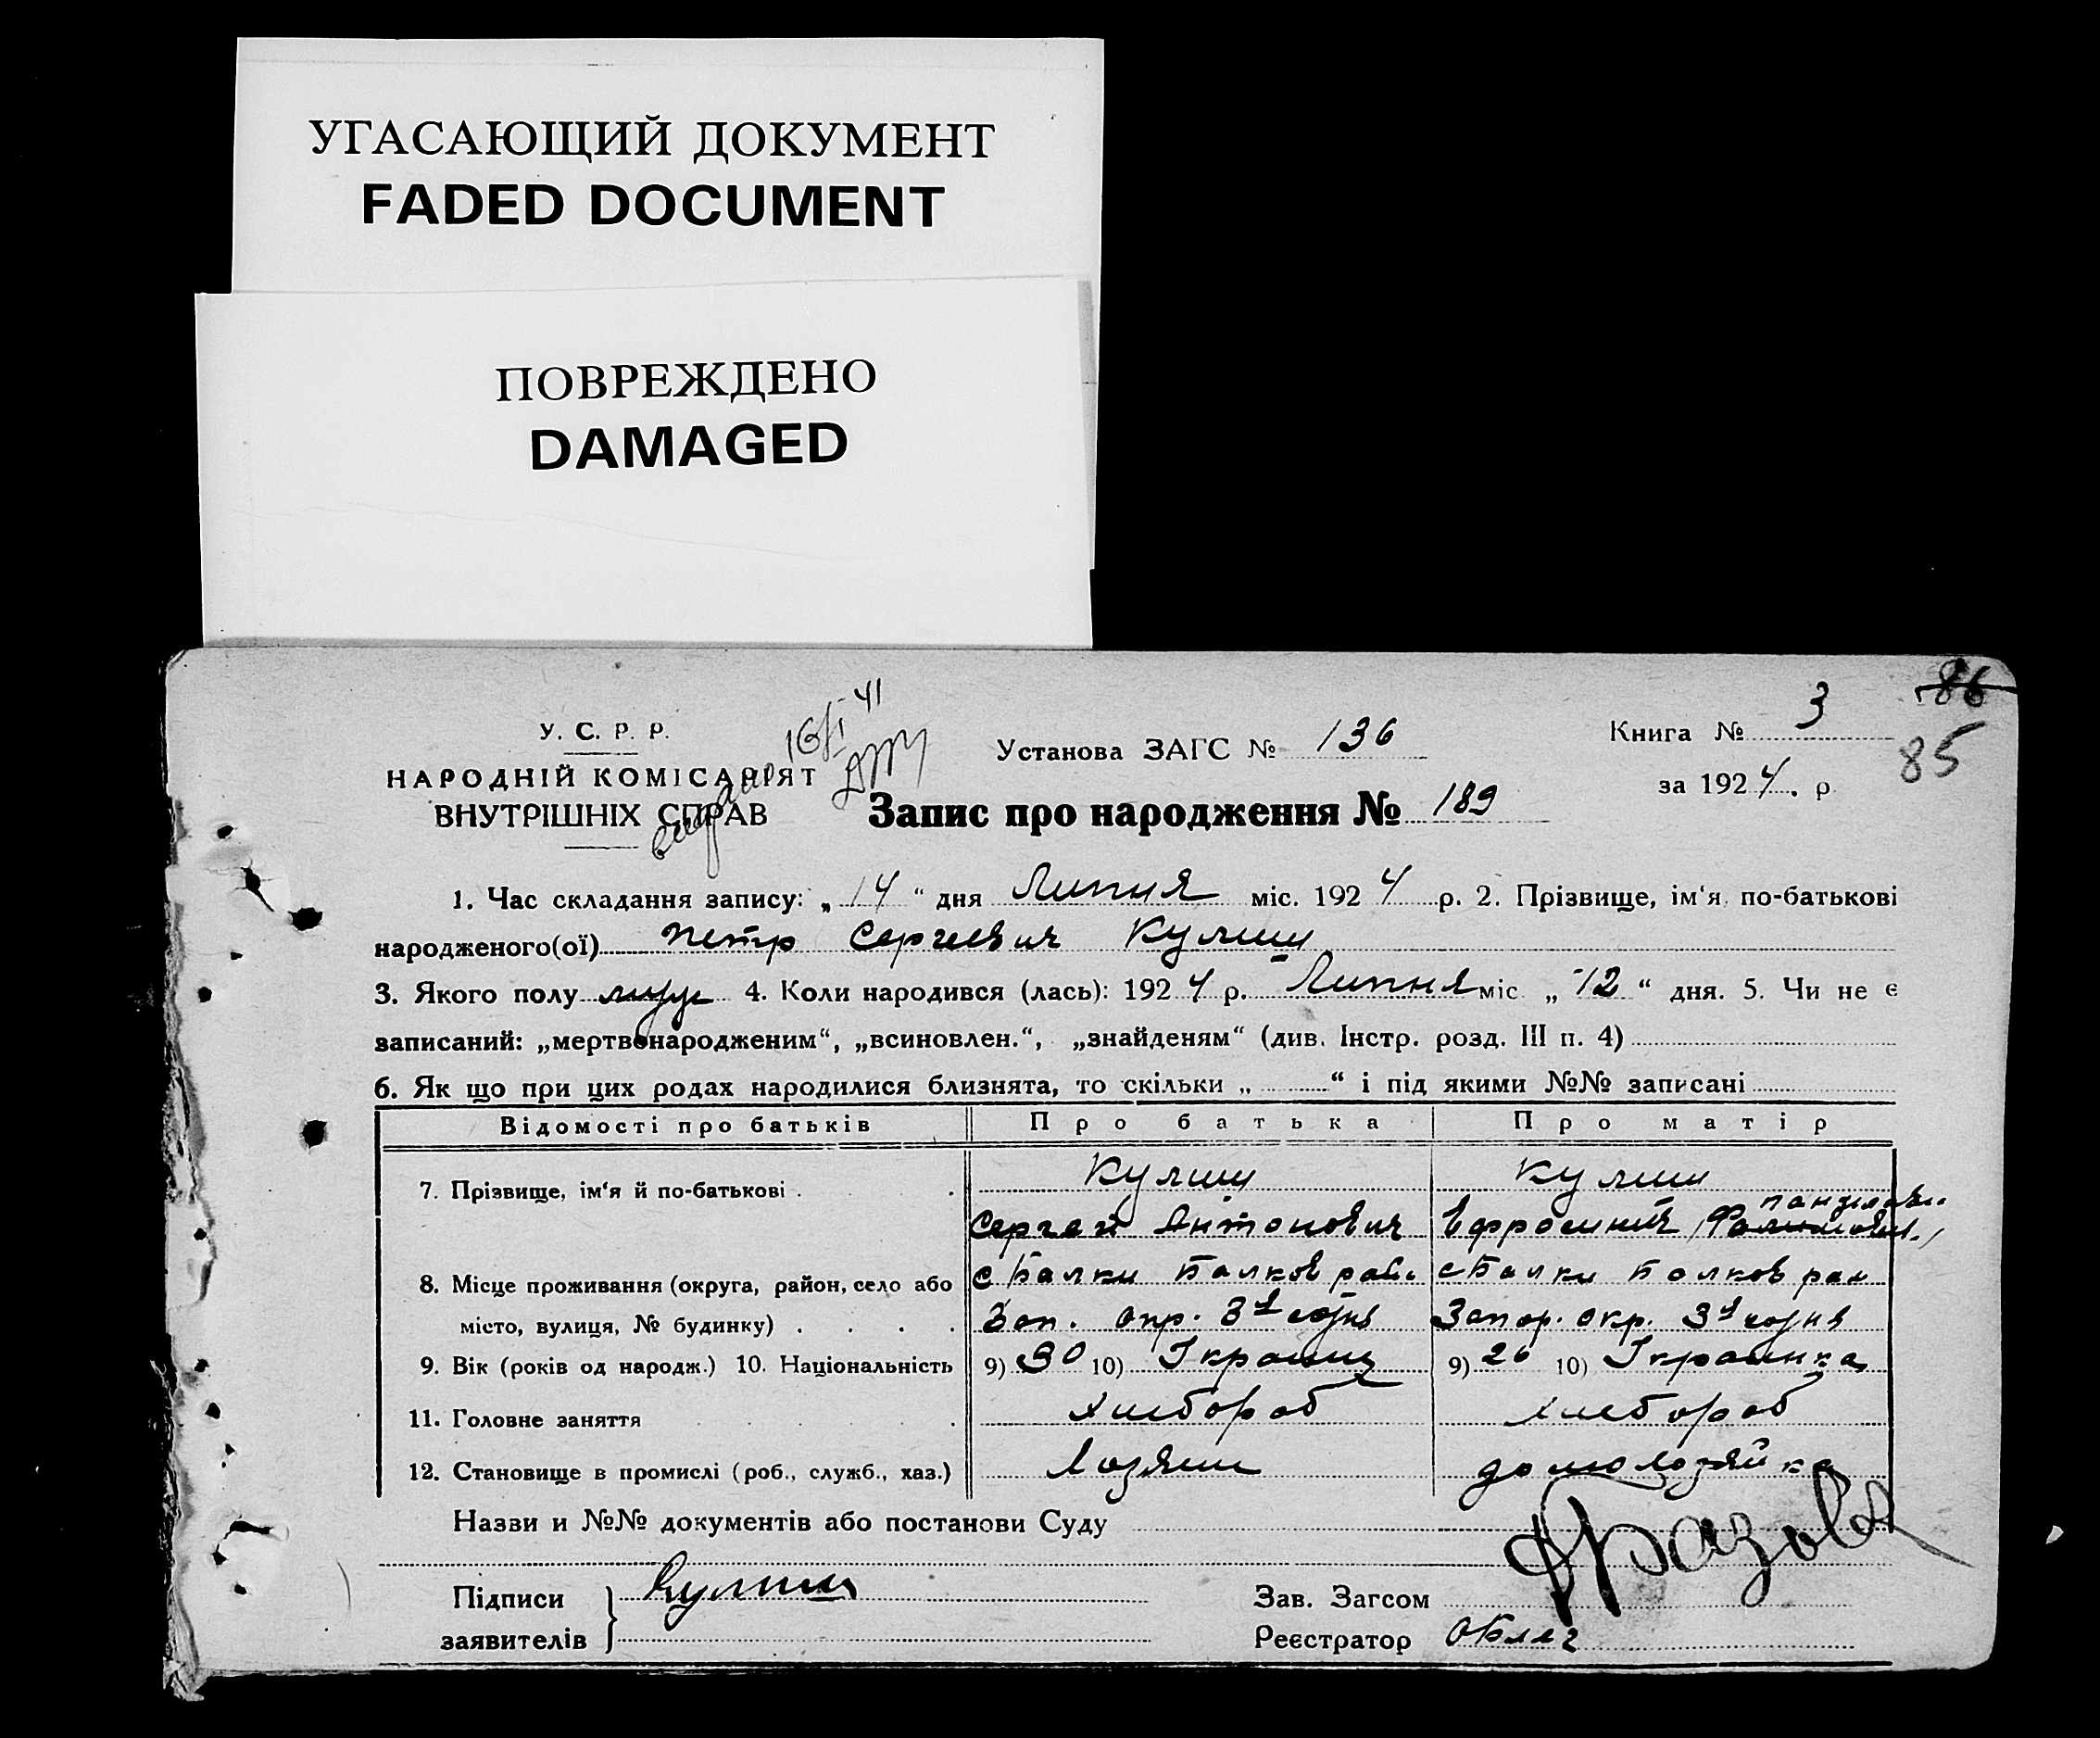 УГАСАЮЩИЙ ДОКУМЕНТ
FADED DOCUMENT
ПОВРЕЖДЕНО
DAMAGED
86
85
У. С. Р. Р.
НАРОДНІЙ КОМІСАРІЯТ
ВНУТРІШНІХ СПРАВ
16/I 41
Установа ЗАГС № 136
Книга № 3
за 1924. р
Запис про народження № 189
1. Час складання запису: „14“ дня Липня міс. 1924 р. 2. Прізвище, ім‘я, по-батькові
народженого(ої) Петр Сергеевич Кулиш
3. Якого полу муж 4. Коли народився (лась): 1924 р. Липня міс „12“ дня. 5. Чи не є
записаний: „мертвонародженим“, „всиновлен.“, „знайденям“ (див. Інстр. розд. III п. 4)
6. Як що при цих родах народилися близнята, то скільки „ “ і під якими №№ записані
Відомості про батьків Про батька Про матір
7. Прізвище, ім‘я й по-батькові . Кулиш Кулиш
Сергей Антонович Ефросиния
8. Місце проживання (округа, район, село або с Балки Балков рай с Балки Балков рай
місто, вулиця, № будинку) . . . . Зап. окр. 3я сотня Запор. окр. 3я сотня
9. Вік (років од народж.) 10. Національність 9) 30 10) Украинц 9) 26 10) Украинка
11. Головне заняття Хлебороб Хлебороб
12. Становище в промислі (роб., служб., хаз.) Хозяин домохозяйка
Назви и №№ документів або постанови Суду
Підписи Кулиш Зав. Загсом
заявителів Реєстратор